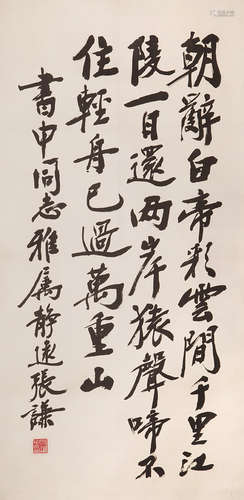 朝辭白帝彩雲間千里江
陵一日還兩岸猿聲啼不
住輕舟已過萬重山
書申同志雅屬靜遠張謙